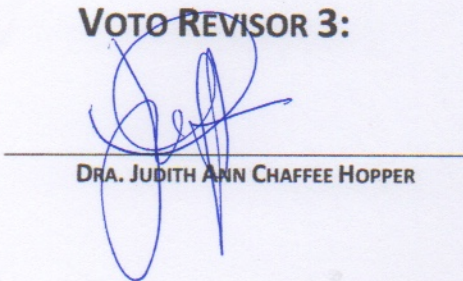 VOTO REVISOR 3:
DRA. JUDITH ANN CHAFFEE HOPPER